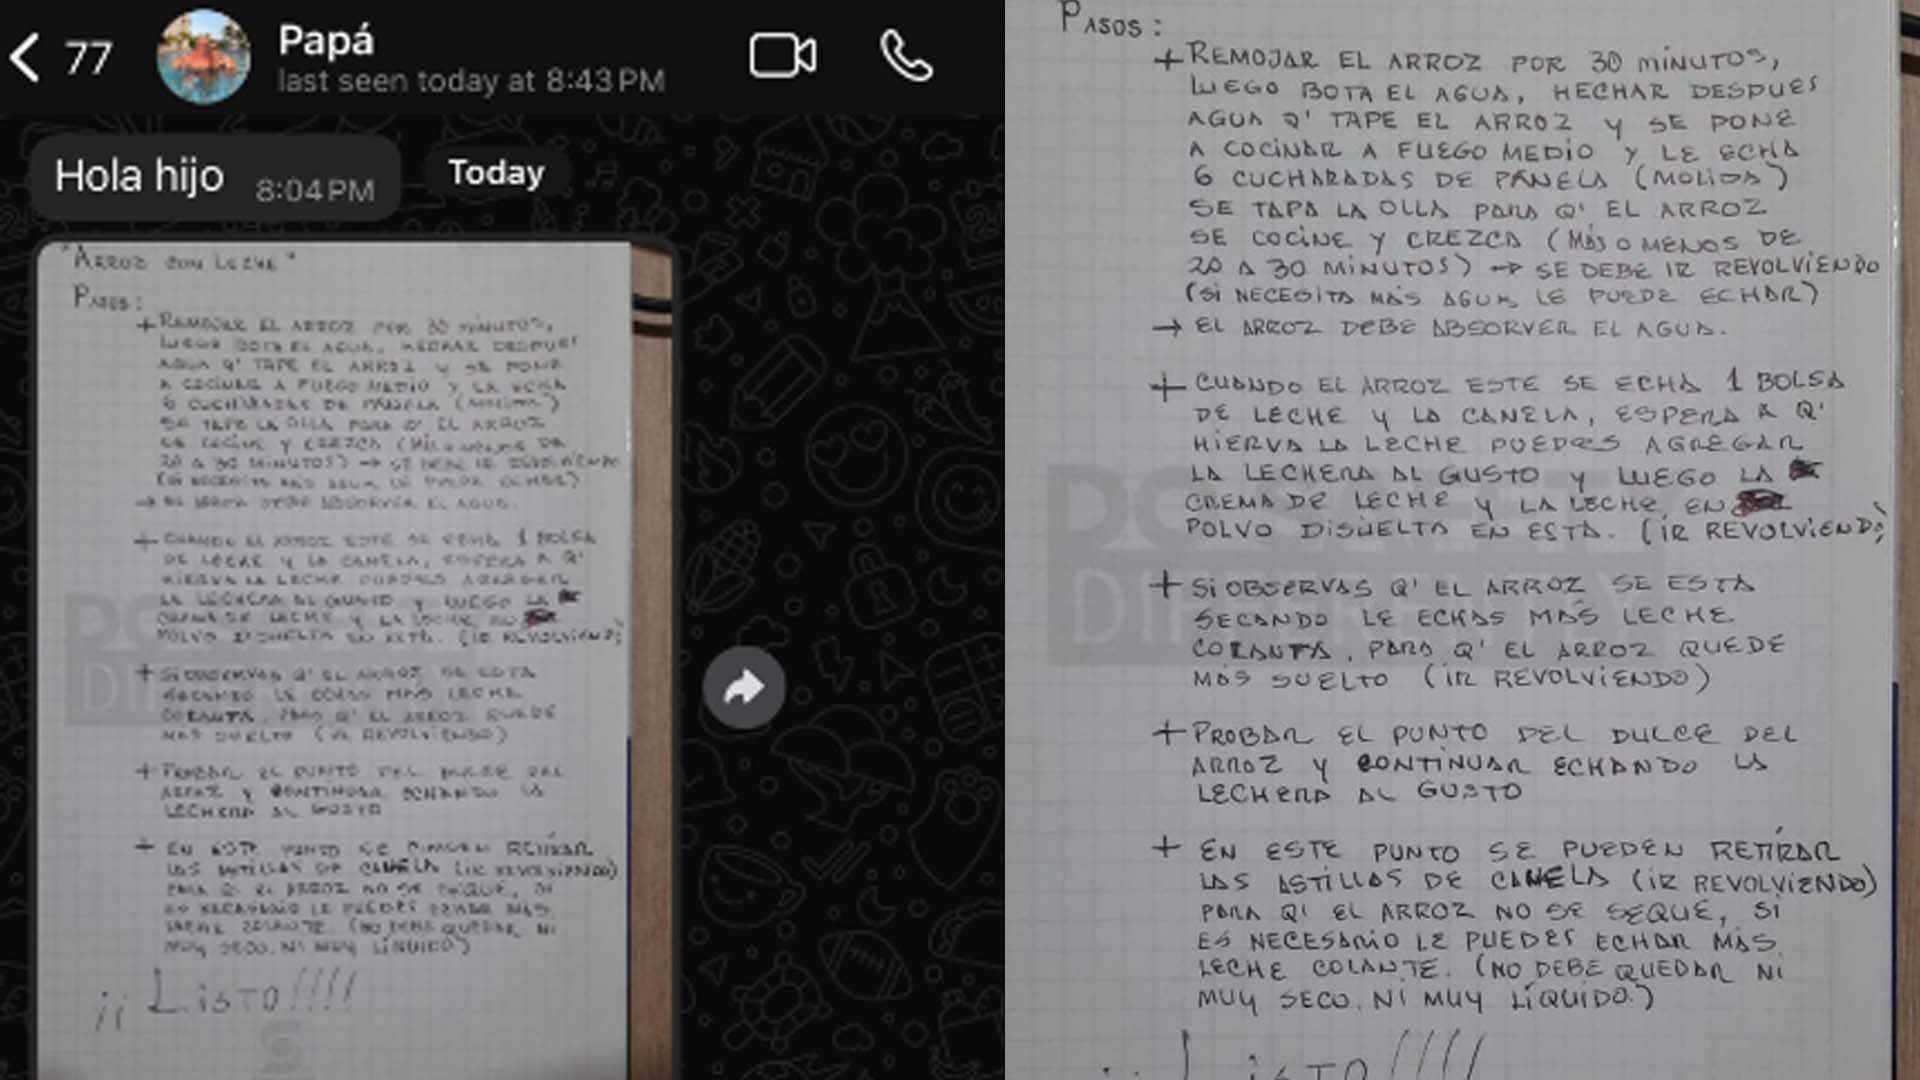 77
Papá
last seen today at 8:43 PM
Hola hijo
8:04 PM
Today
"ARROZ CON LECHE"
PASOS:
+ REMOJAR EL ARROZ POR 30 MINUTOS,
LUEGO BOTA EL AGUA, HECHAR DESPUES
AGUA Q' TAPE EL ARROZ Y SE PONE
A COCINAR A FUEGO MEDIO Y LE ECHA
6 CUCHARADAS DE PANELA (MOLIDA)
SE TAPA LA OLLA PARA Q' EL ARROZ
SE COCINE Y CREZCA (MÁS O MENOS DE
20 A 30 MINUTOS) → SE DEBE IR REVOLVIENDO
(SI NECESITA MÁS AGUA LE PUEDE ECHAR)
→ EL ARROZ DEBE ABSORVER EL AGUA.
+ CUANDO EL ARROZ ESTE SE ECHA 1 BOLSA
DE LECHE Y LA CANELA, ESPERA A Q'
HIERVA LA LECHE PUEDES AGREGAR
LA LECHERA AL GUSTO Y LUEGO LA
CREMA DE LECHE Y LA LECHE EN
POLVO DISUELTA EN ESTA. (IR REVOLVIENDO)
+ SI OBSERVAS Q' EL ARROZ SE ESTA
SECANDO LE ECHAS MÁS LECHE
PARA Q' EL ARROZ QUEDE
MÁS SUELTO (IR REVOLVIENDO)
+ PROBAR EL PUNTO DEL DULCE DEL
ARROZ Y CONTINUAR ECHANDO LA
LECHERA AL GUSTO
+ EN ESTE PUNTO SE PUEDEN RETIRAR
LAS ASTILLAS DE CANELA (IR REVOLVIENDO)
PARA Q' EL ARROZ NO SE SEQUE, SI
ES NECESARIO LE PUEDES ECHAR MÁS
LECHE COLANTE. (NO DEBE QUEDAR NI
MUY SECO, NI MUY LÍQUIDO.)
¡¡ LISTO!!!!
PASOS:
+ REMOJAR EL ARROZ POR 30 MINUTOS,
LUEGO BOTA EL AGUA, HECHAR DESPUES
AGUA Q' TAPE EL ARROZ Y SE PONE
A COCINAR A FUEGO MEDIO Y LE ECHA
6 CUCHARADAS DE PANELA (MOLIDA)
SE TAPA LA OLLA PARA Q' EL ARROZ
SE COCINE Y CREZCA (MÁS O MENOS DE
20 A 30 MINUTOS) → SE DEBE IR REVOLVIENDO
(SI NECESITA MÁS AGUA LE PUEDE ECHAR)
→ EL ARROZ DEBE ABSORVER EL AGUA.
+ CUANDO EL ARROZ ESTE SE ECHA 1 BOLSA
DE LECHE Y LA CANELA, ESPERA A Q'
HIERVA LA LECHE PUEDES AGREGAR
LA LECHERA AL GUSTO Y LUEGO LA
CREMA DE LECHE Y LA LECHE EN
POLVO DISUELTA EN ESTA. (IR REVOLVIENDO)
+ SI OBSERVAS Q' EL ARROZ SE ESTA
SECANDO LE ECHAS MÁS LECHE
PARA Q' EL ARROZ QUEDE
MÁS SUELTO (IR REVOLVIENDO)
+ PROBAR EL PUNTO DEL DULCE DEL
ARROZ Y CONTINUAR ECHANDO LA
LECHERA AL GUSTO
+ EN ESTE PUNTO SE PUEDEN RETIRAR
LAS ASTILLAS DE CANELA (IR REVOLVIENDO)
PARA Q' EL ARROZ NO SE SEQUE, SI
ES NECESARIO LE PUEDES ECHAR MÁS
LECHE COLANTE. (NO DEBE QUEDAR NI
MUY SECO, NI MUY LÍQUIDO.)
¡¡ LISTO!!!!